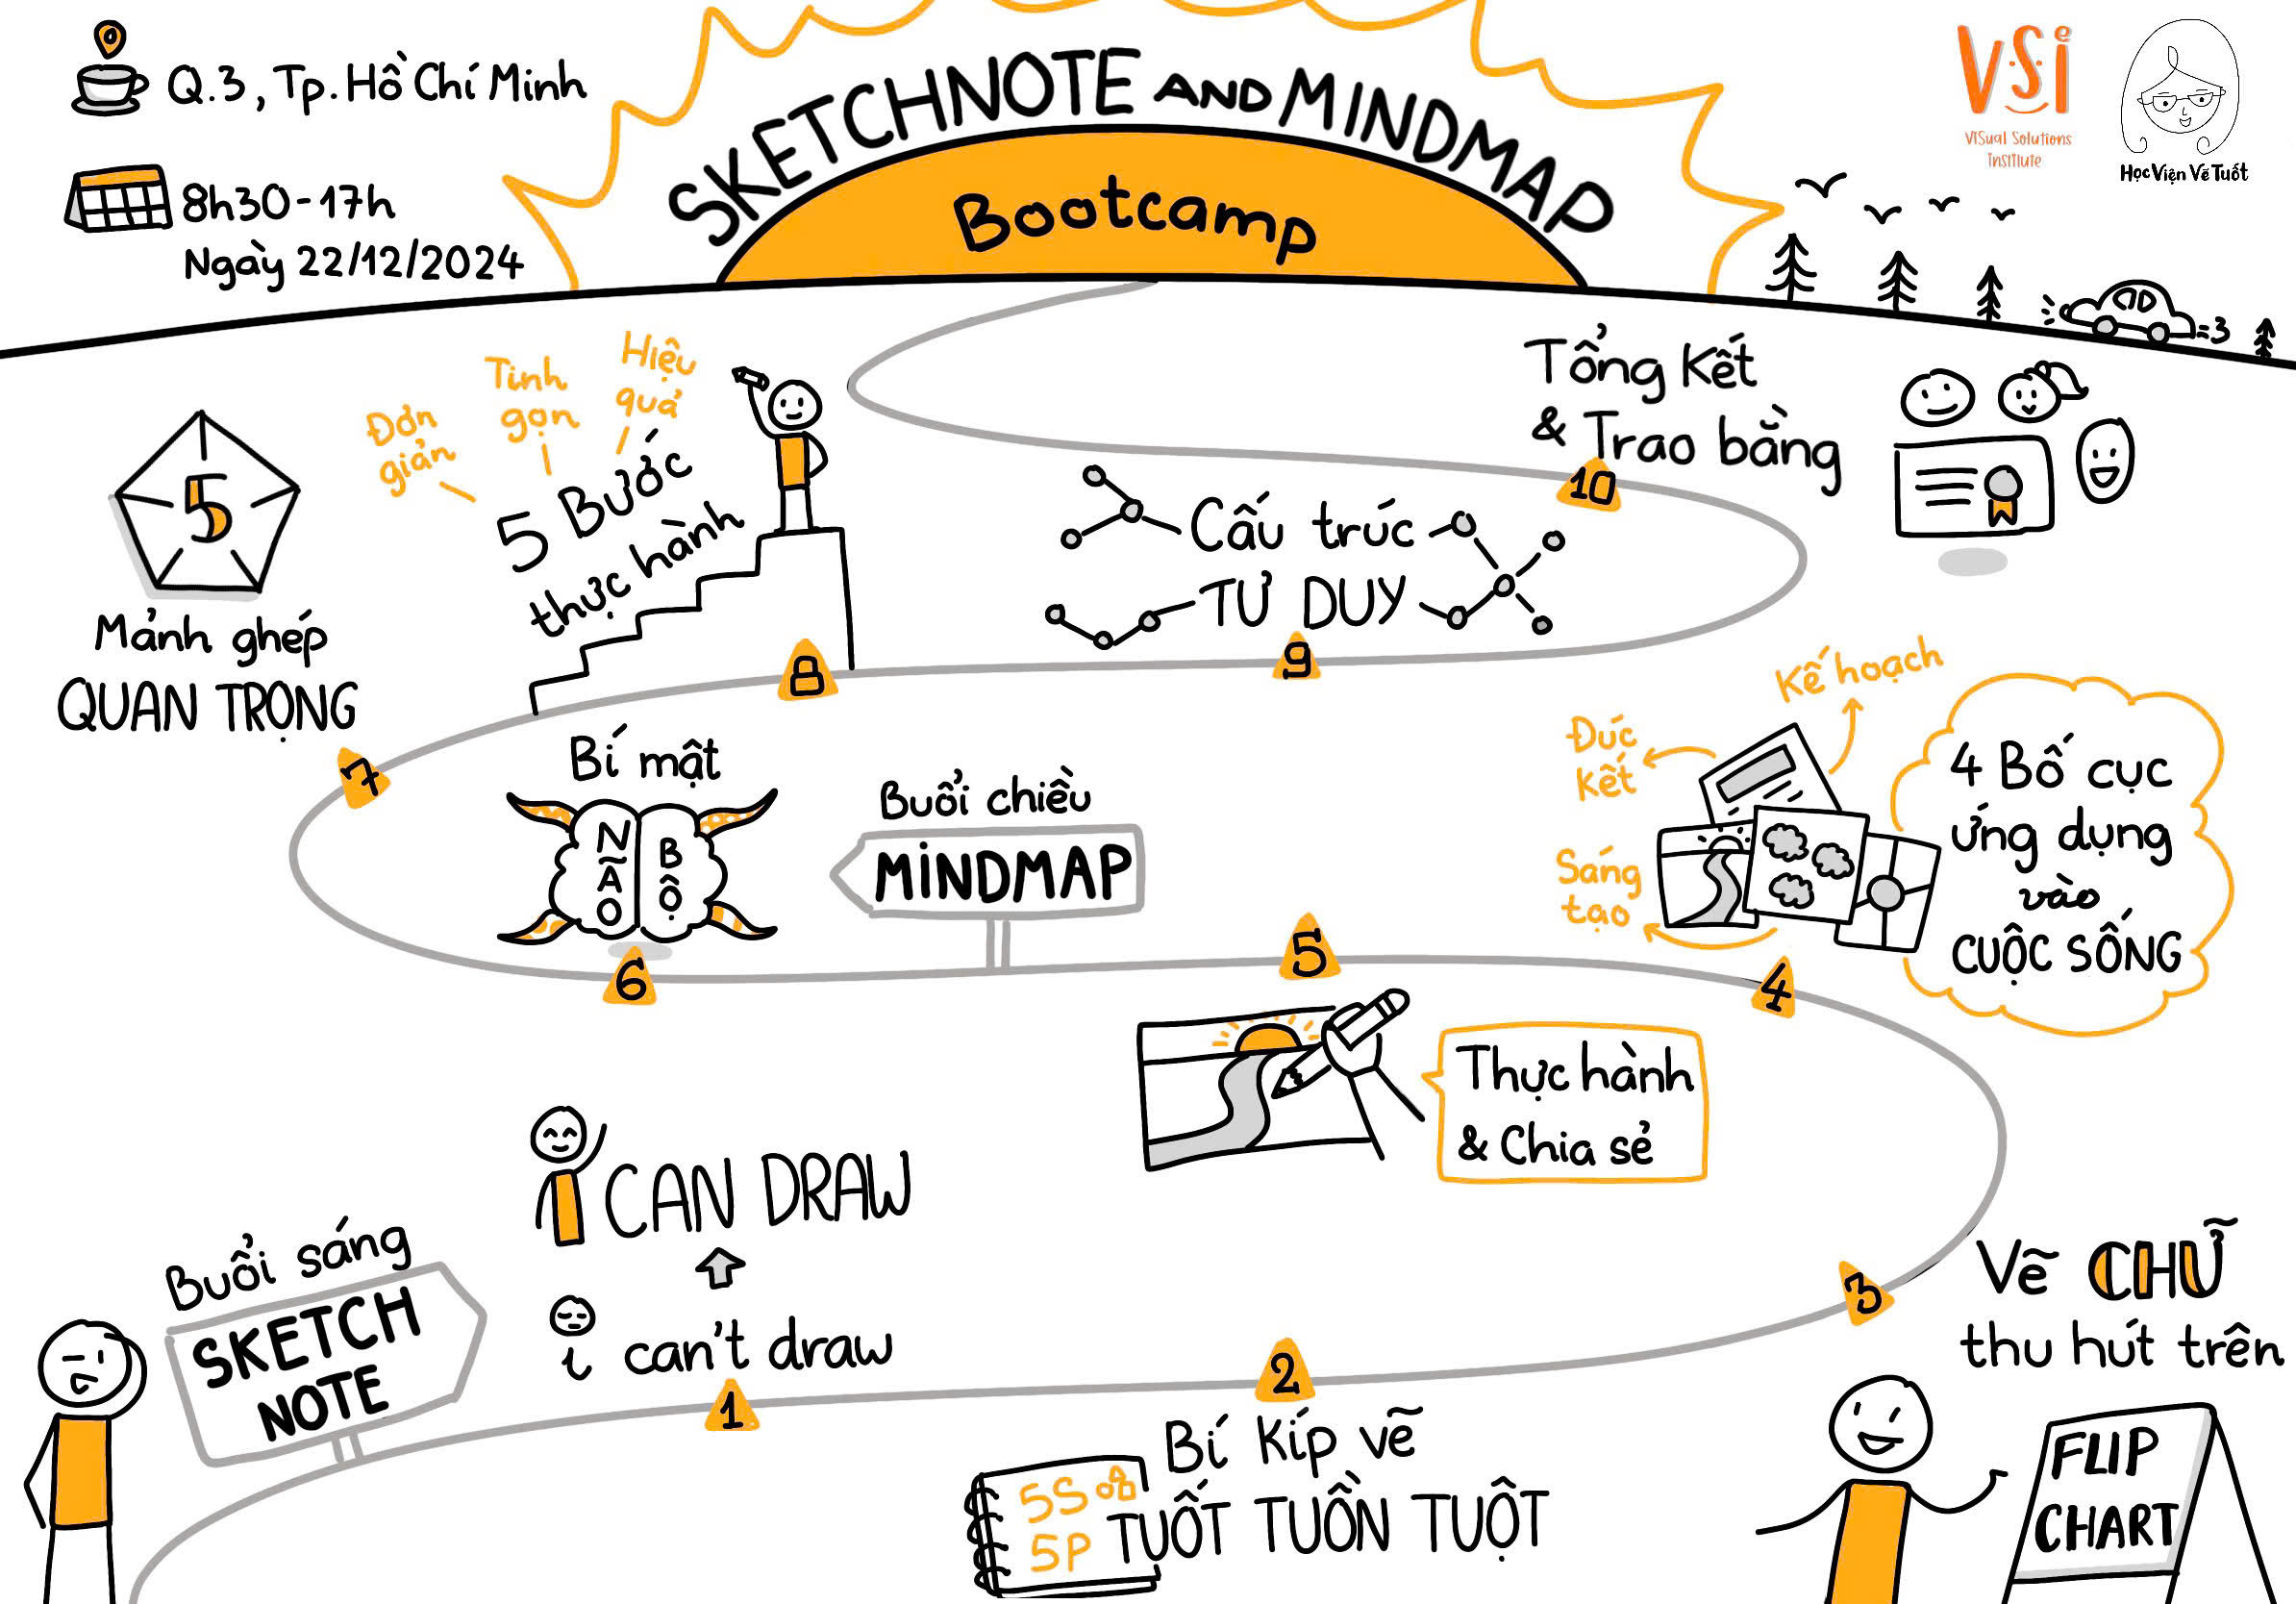 Q.3, Tp. Hồ Chí Minh
8h30-17h
Ngày 22/12/2024
SKETCHNOTE AND MINDMAP
Bootcamp
VSi
Visual Solutions
Institute
Học Viện Vẽ Tuốt
Buổi sáng
SKETCH
NOTE
CAN DRAW
i can't draw
1
2
Bí kíp vẽ
TUỐT TUỒN TUỘT
5S
5P
3
Vẽ CHỮ
thu hút trên
FLIP
CHART
4
4 Bố cục
ứng dụng
vào
CUỘC SỐNG
Kế hoạch
Đúc
kết
Sáng
tạo
5
Thực hành
& Chia sẻ
Buổi chiều
MINDMAP
6
Bí mật
NÃO
BỘ
7
5
Mảnh ghép
QUAN TRỌNG
8
5 Bước
thực hành
Đơn
giản
Tinh
gọn
Hiệu
quả
9
Cấu trúc
TƯ DUY
10
Tổng kết
& Trao bằng